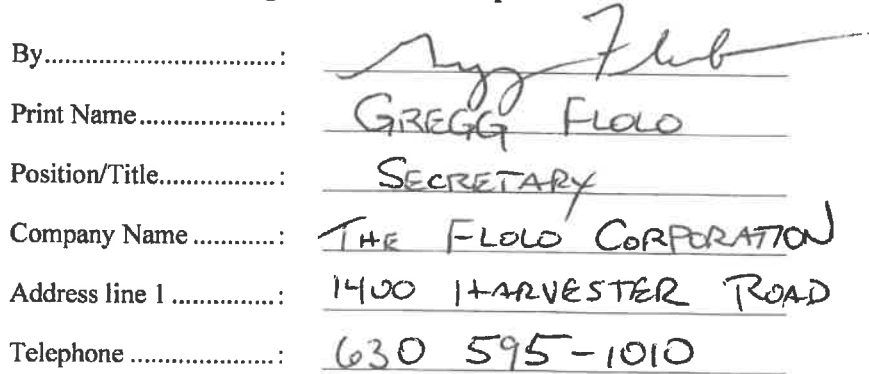 By..............................:
Print Name.....................: GREGG FLOLO
Position/Title.................: SECRETARY
Company Name ............: THE FLOLO CORPORATION
Address line 1 ...............: 1400 HARVESTER ROAD
Telephone ......................: 630 595-1010